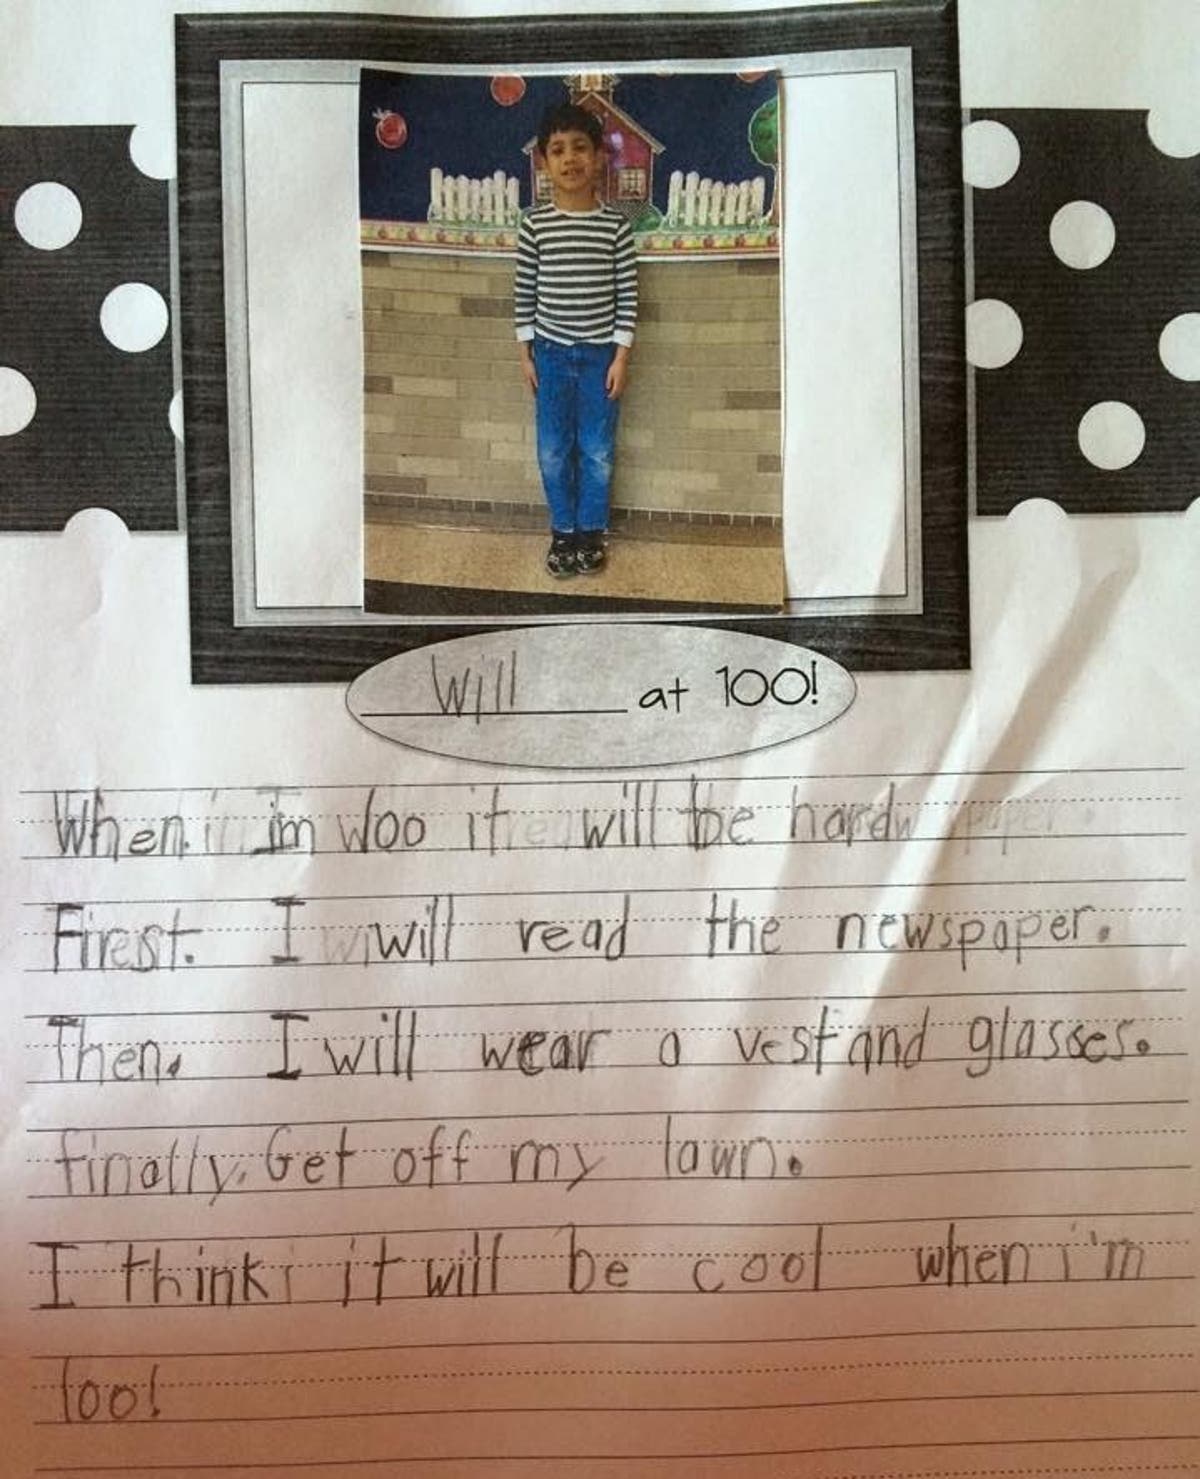 Will at 100!
When im 100 it will be hard
Firest. I will read the newspaper.
Then. I will wear a vest and glasses.
finally. Get off my lawn.
I think it will be cool when i'm
100!